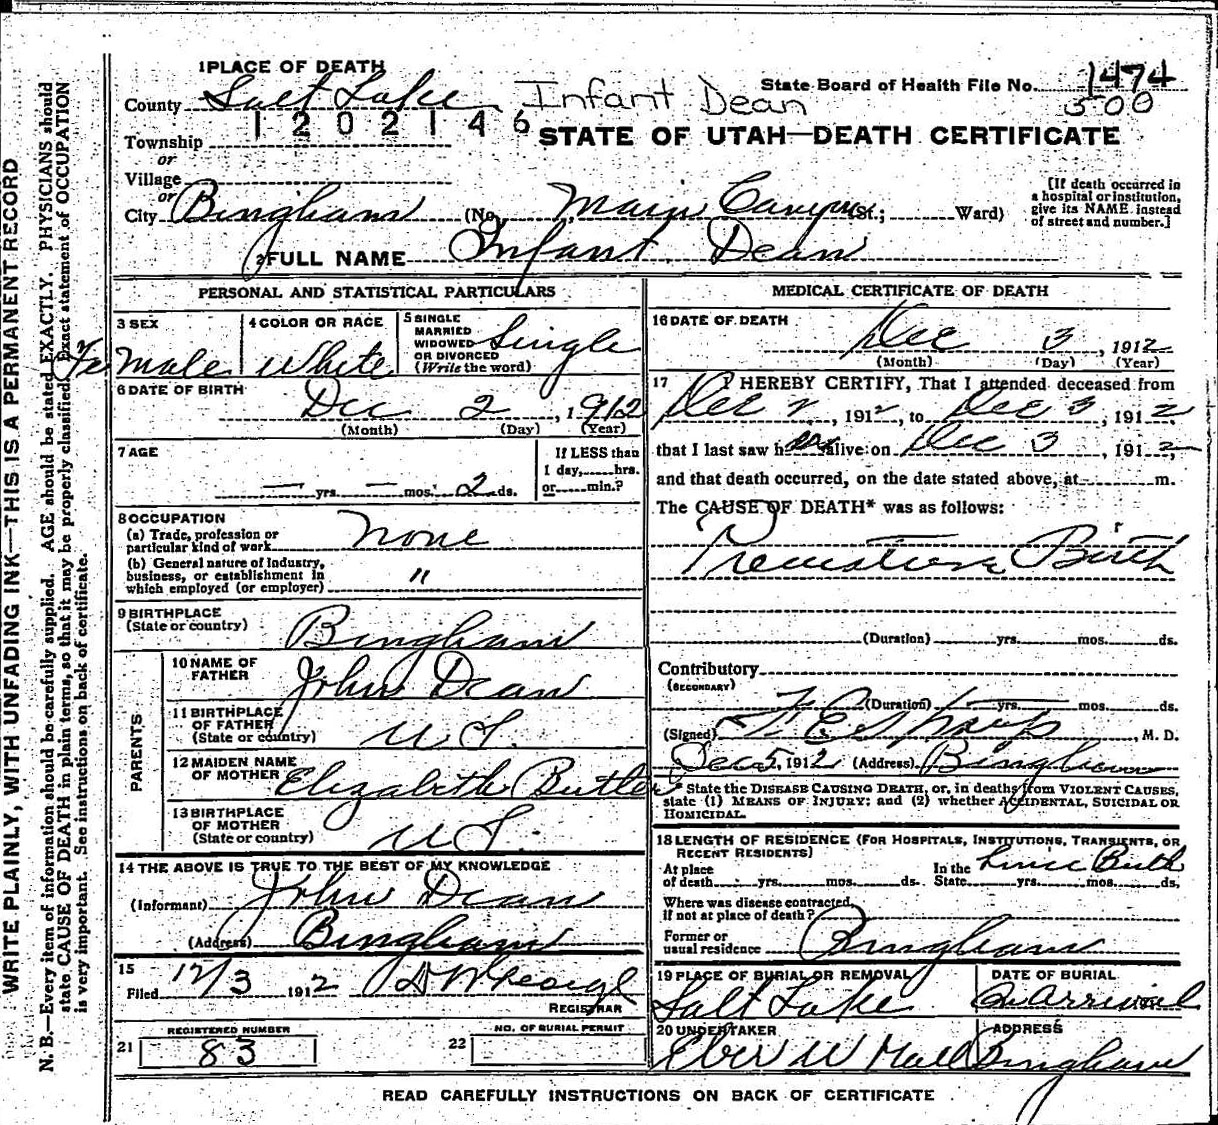 1 PLACE OF DEATH
County Salt Lake Infant Dean State Board of Health File No. 1474
500
1202146
Township
or
Village
or
City Bingham (No. Main Canyon St.; Ward)
[If death occurred in a hospital or institution, give its NAME instead of street and number.]
STATE OF UTAH—DEATH CERTIFICATE
2 FULL NAME Infant Dean
PERSONAL AND STATISTICAL PARTICULARS
3 SEX Female
4 COLOR OR RACE White
5 SINGLE MARRIED WIDOWED OR DIVORCED (Write the word) Single
6 DATE OF BIRTH Dec 2, 1912
(Month) (Day) (Year)
7 AGE — yrs. — mos. 2 ds.
If LESS than 1 day, hrs. or min.?
8 OCCUPATION
(a) Trade, profession or particular kind of work None
(b) General nature of industry, business, or establishment in which employed (or employer) "
9 BIRTHPLACE (State or country) Bingham
PARENTS
10 NAME OF FATHER John Dean
11 BIRTHPLACE OF FATHER (State or country) U S.
12 MAIDEN NAME OF MOTHER Elizabeth Butler
13 BIRTHPLACE OF MOTHER (State or country) U S.
14 THE ABOVE IS TRUE TO THE BEST OF MY KNOWLEDGE
(Informant) John Dean
(Address) Bingham
15
Filed 12/3 1912 REGISTRAR
REGISTERED NUMBER
21 83
NO. OF BURIAL PERMIT
22
MEDICAL CERTIFICATE OF DEATH
16 DATE OF DEATH Dec 3, 1912
(Month) (Day) (Year)
17 I HEREBY CERTIFY, That I attended deceased from
Dec 2, 1912, to Dec 3, 1912,
that I last saw her alive on Dec 3, 1912,
and that death occurred, on the date stated above, at m.
The CAUSE OF DEATH* was as follows:
Premature Birth
(Duration) yrs. mos. ds.
Contributory
(SECONDARY)
(Duration) yrs. mos. ds.
(Signed) M. D.
Dec 5, 1912 (Address) Bingham
* State the DISEASE CAUSING DEATH, or, in deaths from VIOLENT CAUSES,
state (1) MEANS OF INJURY; and (2) whether ACCIDENTAL, SUICIDAL OR
HOMICIDAL.
18 LENGTH OF RESIDENCE (FOR HOSPITALS, INSTITUTIONS, TRANSIENTS, OR
RECENT RESIDENTS)
At place of death yrs. mos. ds. In the State yrs. mos. ds. Since Birth
Where was disease contracted, if not at place of death?
Former or usual residence Bingham
19 PLACE OF BURIAL OR REMOVAL Salt Lake
DATE OF BURIAL On Arrival
20 UNDERTAKER Eber W Hall
ADDRESS Bingham
READ CAREFULLY INSTRUCTIONS ON BACK OF CERTIFICATE
WRITE PLAINLY, WITH UNFADING INK—THIS IS A PERMANENT RECORD
N. B.—Every item of information should be carefully supplied. AGE should be stated EXACTLY. PHYSICIANS should
state CAUSE OF DEATH in plain terms, so that it may be properly classified. Exact statement of OCCUPATION
is very important. See instructions on back of certificate.